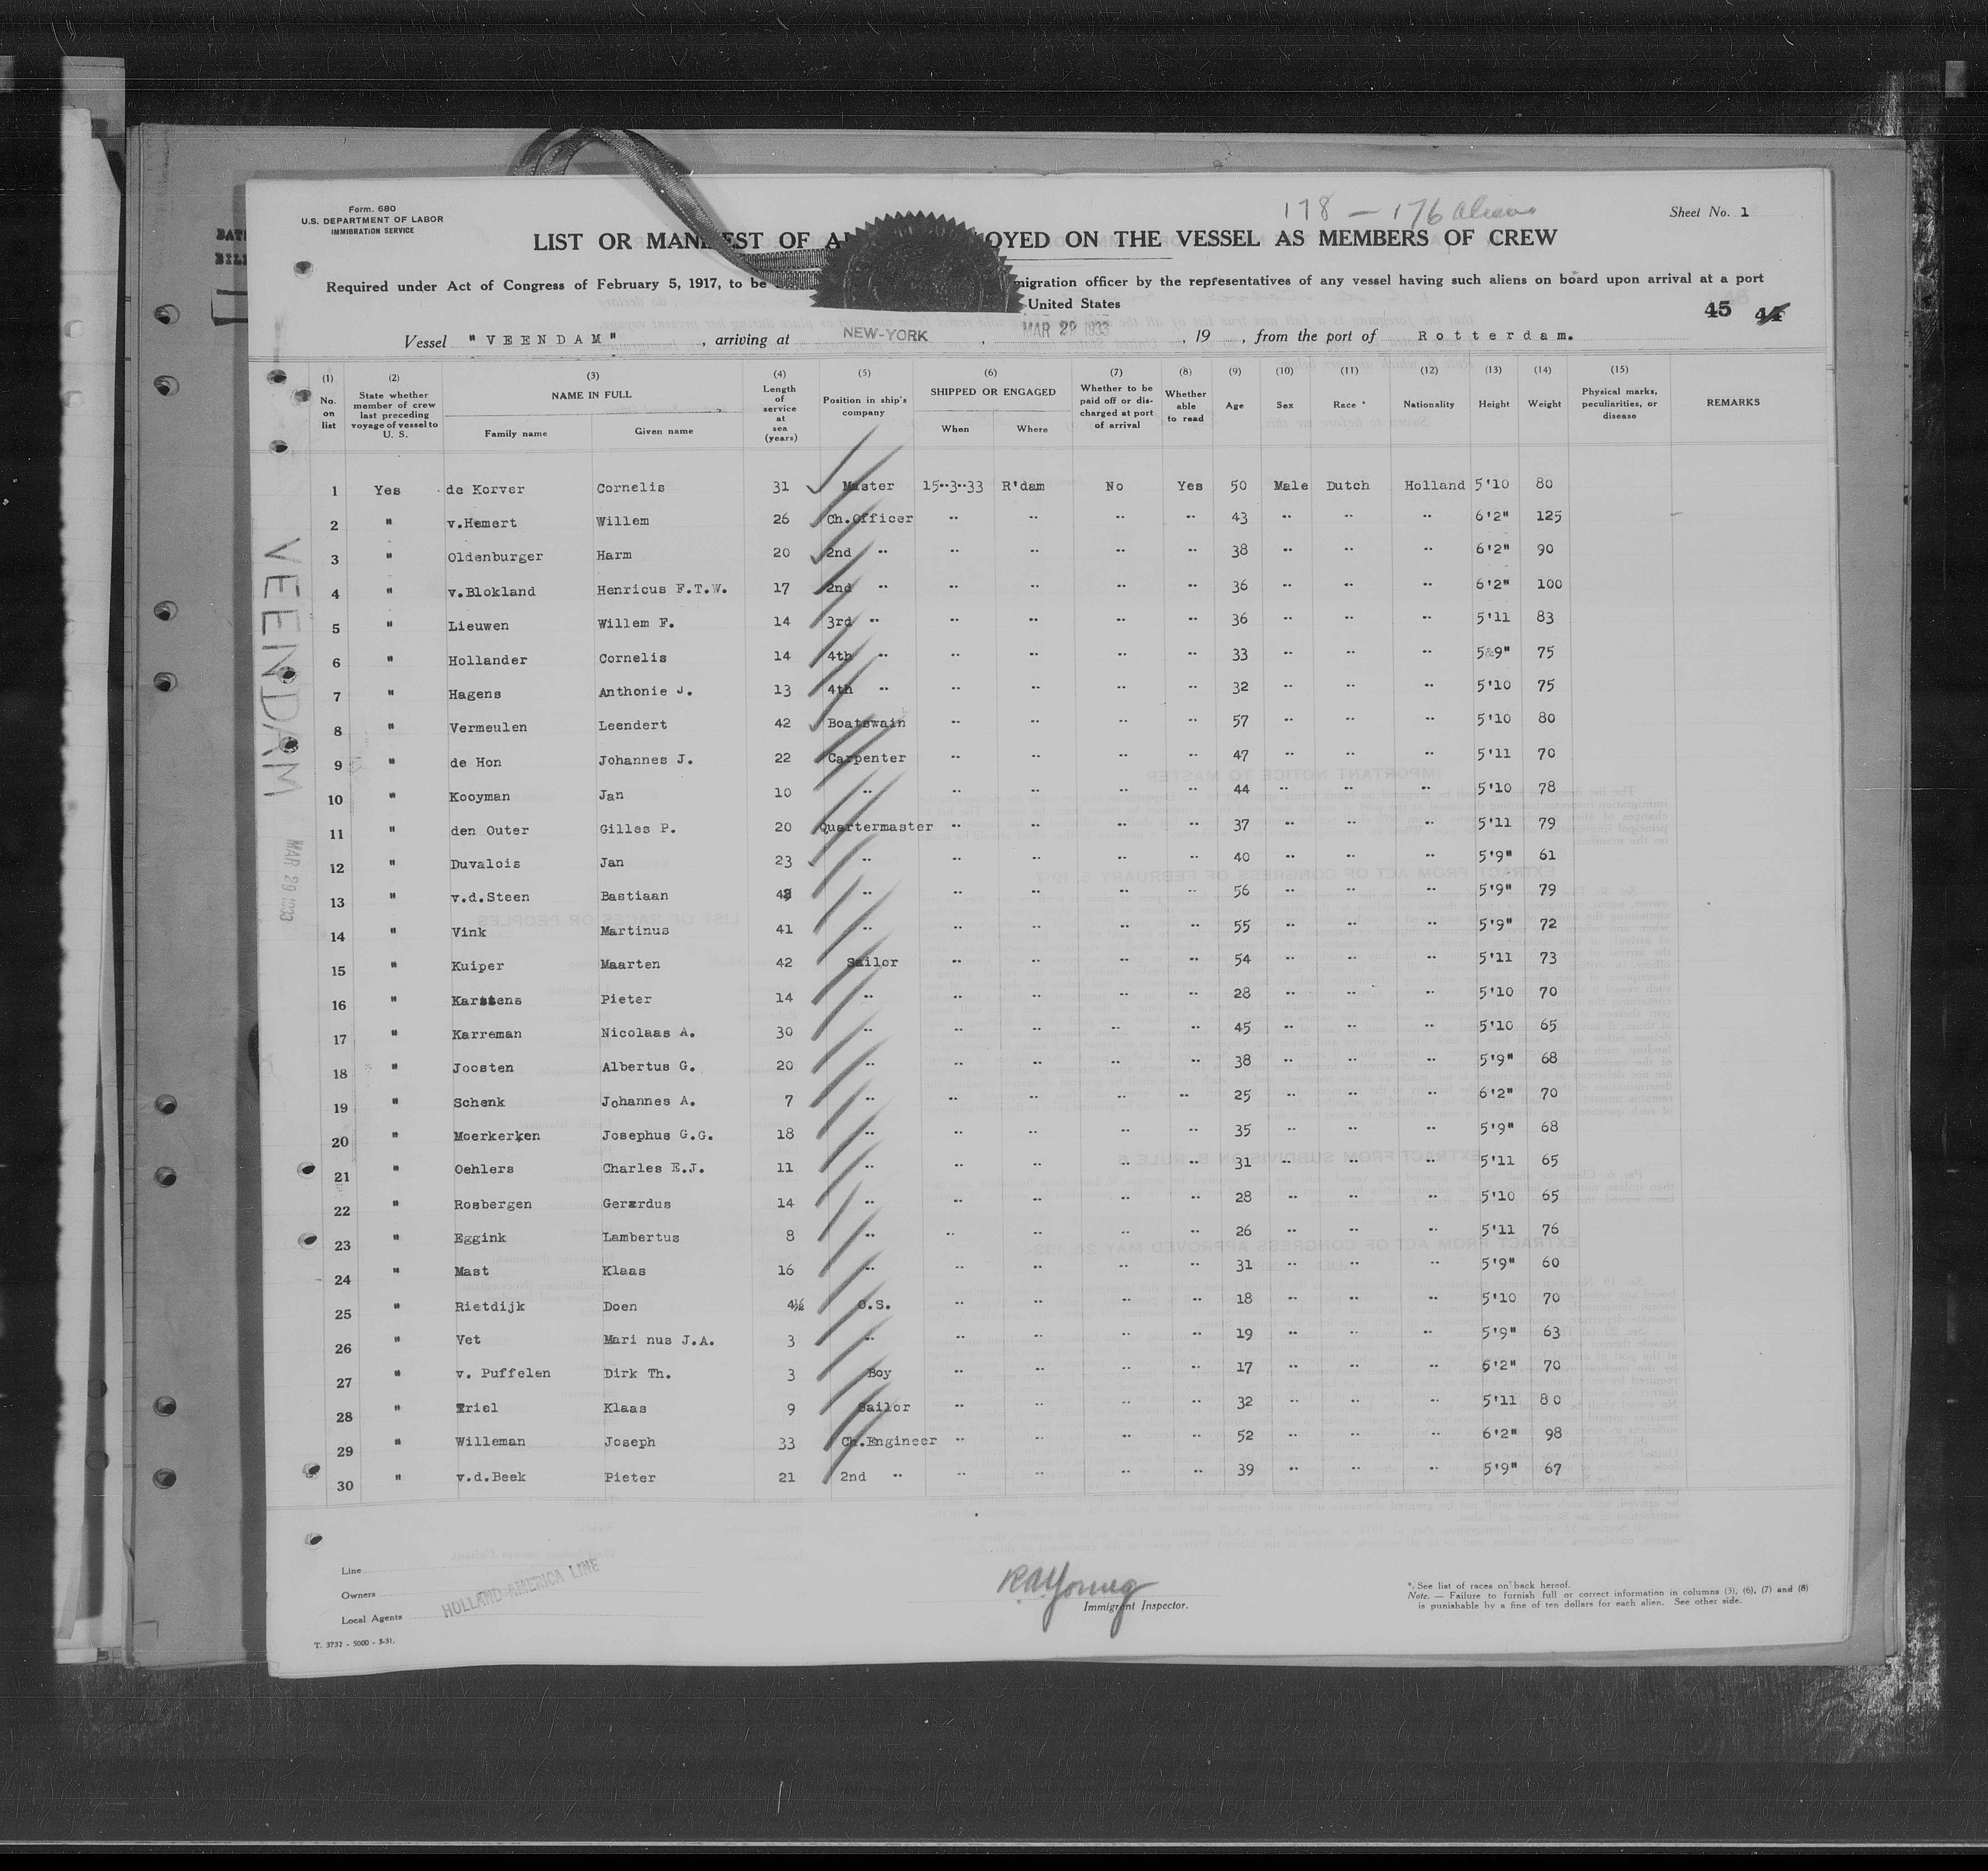 Form. 680
U.S. DEPARTMENT OF LABOR
IMMIGRATION SERVICE
178 - 176 aliens
Sheet No. 1
LIST OR MANIFEST OF OYED ON THE VESSEL AS MEMBERS OF CREW
Required under Act of Congress of February 5, 1917, to be migration officer by the representatives of any vessel having such aliens on board upon arrival at a port
United States
45 44
Vessel "VEENDAM", arriving at NEW-YORK, MAR 29 1933, 19 , from the port of Rotterdam.
(1) No. on list (2) State whether member of crew last preceding voyage of vessel to U. S. (3) NAME IN FULL Family name Given name (4) Length of service at sea (years) (5) Position in ship's company (6) SHIPPED OR ENGAGED When Where (7) Whether to be paid off or discharged at port of arrival (8) Whether able to read (9) Age (10) Sex (11) Race * (12) Nationality (13) Height (14) Weight (15) Physical marks, peculiarities, or disease REMARKS
1 Yes de Korver Cornelis 31 Master 15--3--33 R'dam No Yes 50 Male Dutch Holland 5'10 80
2 " v.Hemert Willem 26 Ch.Officer -- -- -- -- 43 -- -- -- 6'2" 125
3 " Oldenburger Harm 20 2nd -- -- -- -- -- 38 -- -- -- 6'2" 90
4 " v.Blokland Henricus F.T.W. 17 2nd -- -- -- -- -- 36 -- -- -- 6'2" 100
5 " Lieuwen Willem F. 14 3rd -- -- -- -- -- 36 -- -- -- 5'11 83
6 " Hollander Cornelis 14 4th -- -- -- -- -- 33 -- -- -- 5&9" 75
7 " Hagens Anthonie J. 13 4th -- -- -- -- -- 32 -- -- -- 5'10 75
8 " Vermeulen Leendert 42 Boatswain -- -- -- -- 57 -- -- -- 5'10 80
9 " de Hon Johannes J. 22 Carpenter -- -- -- -- 47 -- -- -- 5'11 70
10 " Kooyman Jan 10 -- -- -- -- -- 44 -- -- -- 5'10 78
11 " den Outer Gilles P. 20 Quartermaster -- -- -- -- 37 -- -- -- 5'11 79
12 " Duvalois Jan 23 -- -- -- -- -- 40 -- -- -- 5'9" 61
13 " v.d.Steen Bastiaan -- -- -- -- -- 56 -- -- -- 5'9" 79
14 " Vink Martinus 41 -- -- -- -- -- 55 -- -- -- 5'9" 72
15 " Kuiper Maarten 42 Sailor -- -- -- -- 54 -- -- -- 5'11 73
16 " Karstens Pieter 14 -- -- -- -- -- 28 -- -- -- 5'10 70
17 " Karreman Nicolaas A. 30 -- -- -- -- -- 45 -- -- -- 5'10 65
18 " Joosten Albertus G. 20 -- -- -- -- -- 38 -- -- -- 5'9" 68
19 " Schenk Johannes A. 7 -- -- -- -- -- 25 -- -- -- 6'2" 70
20 " Moerkerken Josephus G.G. 18 -- -- -- -- -- 35 -- -- -- 5'9" 68
21 " Oehlers Charles E.J. 11 -- -- -- -- -- 31 -- -- -- 5'11 65
22 " Rosbergen Gerardus 14 -- -- -- -- -- 28 -- -- -- 5'10 65
23 " Eggink Lambertus 8 -- -- -- -- -- 26 -- -- -- 5'11 76
24 " Mast Klaas 16 -- -- -- -- -- 31 -- -- -- 5'9" 60
25 " Rietdijk Doen 4½ O.S. -- -- -- -- 18 -- -- -- 5'10 70
26 " Vet Mari nus J.A. 3 -- -- -- -- -- 19 -- -- -- 5'9" 63
27 " v. Puffelen Dirk Th. 3 Boy -- -- -- -- 17 -- -- -- 6'2" 70
28 " Triel Klaas 9 Sailor -- -- -- -- 32 -- -- -- 5'11 80
29 " Willeman Joseph 33 Ch.Engineer -- -- -- -- 52 -- -- -- 6'2" 98
30 " v.d.Beek Pieter 21 2nd -- -- -- -- -- 39 -- -- -- 5'9" 67
VEENDAM
MAR 29 1933
Line
Owners
Local Agents
HOLLAND-AMERICA LINE
T. 3732 - 5000 - 3-31.
R A Young
Immigrant Inspector.
* See list of races on back hereof.
Note. — Failure to furnish full or correct information in columns (3), (6), (7) and (8)
is punishable by a fine of ten dollars for each alien. See other side.